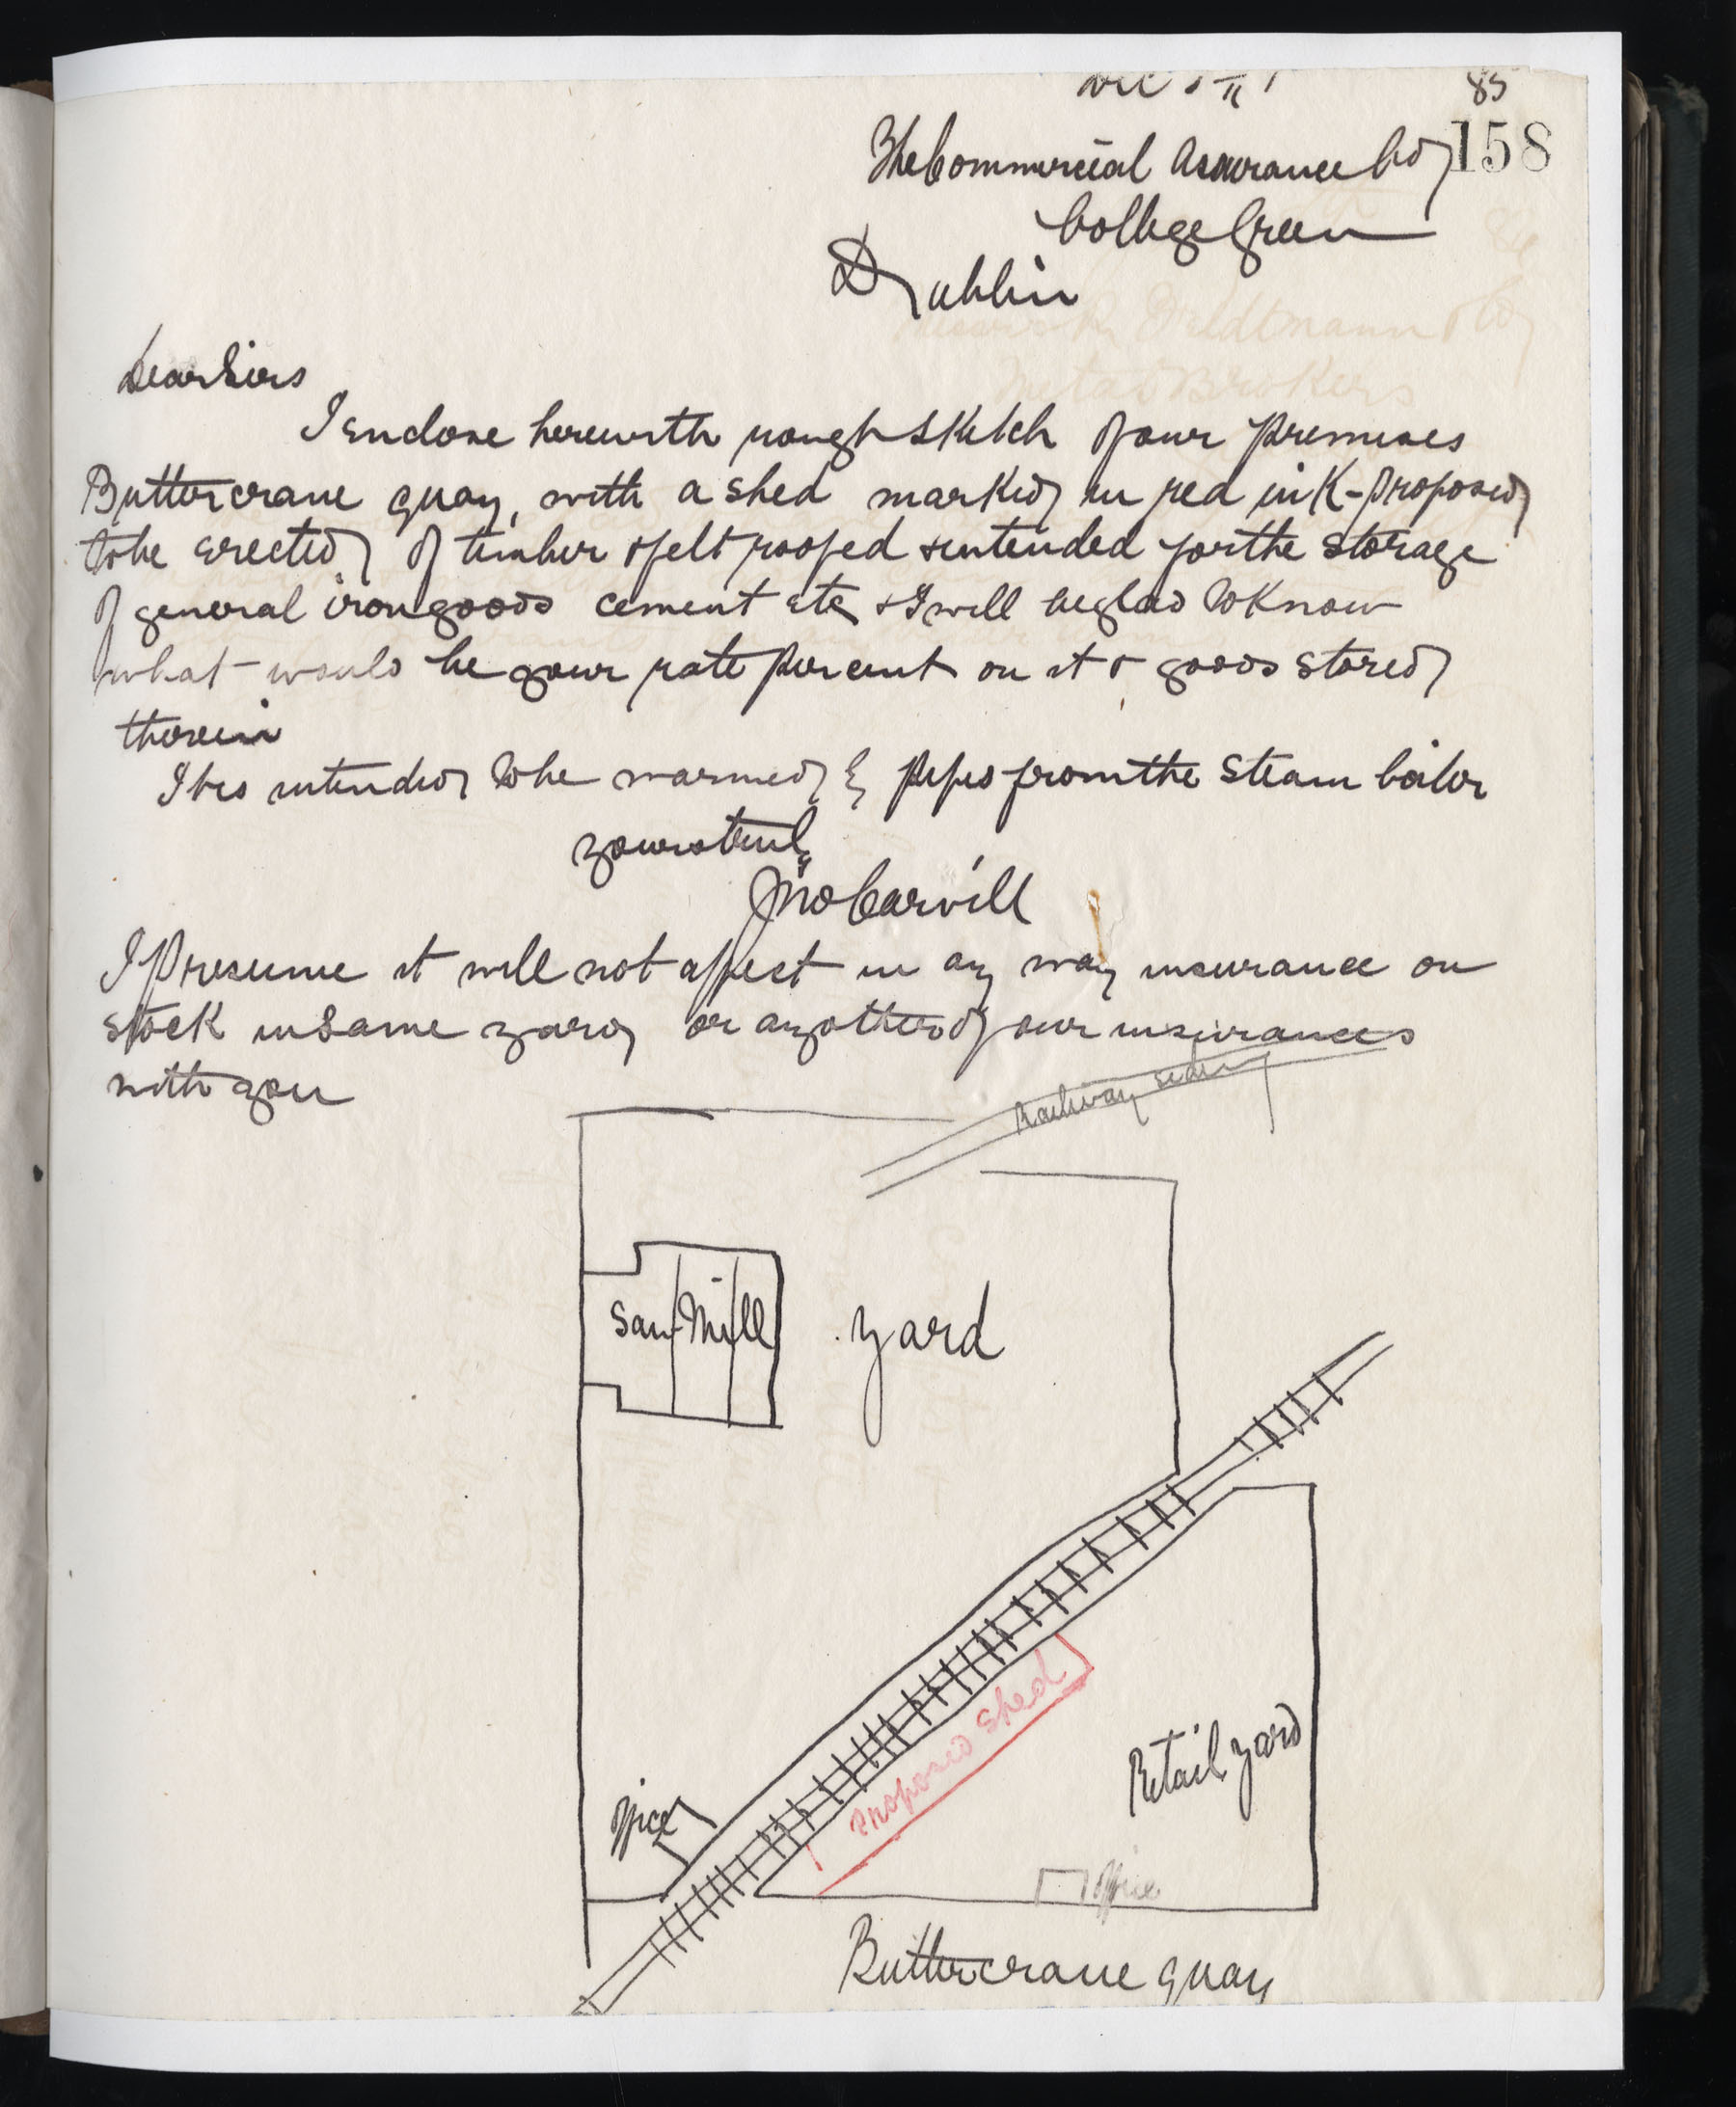 85
158
The Commercial Assurance Co
College Green
Dublin
Dear Sirs
I enclose herewith rough sketch of our premises
Buttercrane Quay, with a shed marked in red ink - proposed
to be erected of timber & felt roofed & intended for the storage
of general iron goods cement etc & I will be glad to know
what would be your rate per cent on it & goods stored
therein
It is intended to be warmed by pipes from the steam boiler
yours truly
Jno Carvill
I presume it will not affect in any way insurance on
stock in same yard or any other of our insurances
with you
Railway siding
Saw Mill
yard
Proposed Shed
Retail yard
office
office
Buttercrane Quay